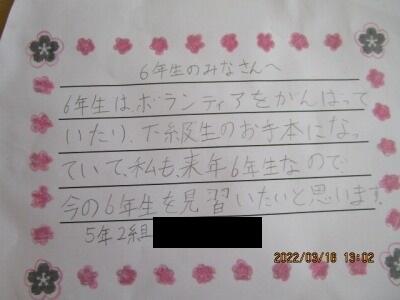 6年生のみなさんへ
6年生は、ボランティアをがんばって
いたり、下級生のお手本になっ
ていて、私も、来年6年生なので
今の6年生を見習いたいと思います。
5年2組
2022/03/16 13:02